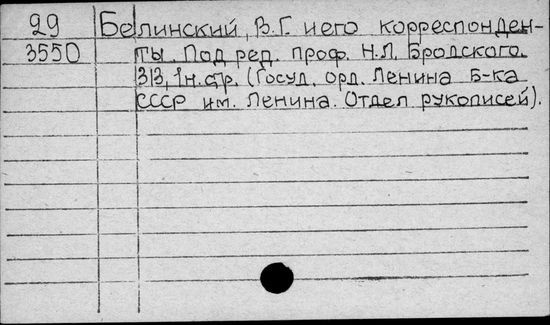 29 Белинский, В.Г. и его корреспонден-
3550 ты. Под ред. проф. Н.Л. Бродского.
313, 1н. стр. (Госуд. орд. Ленина Б-ка
СССР им. Ленина. Отдел рукописей).